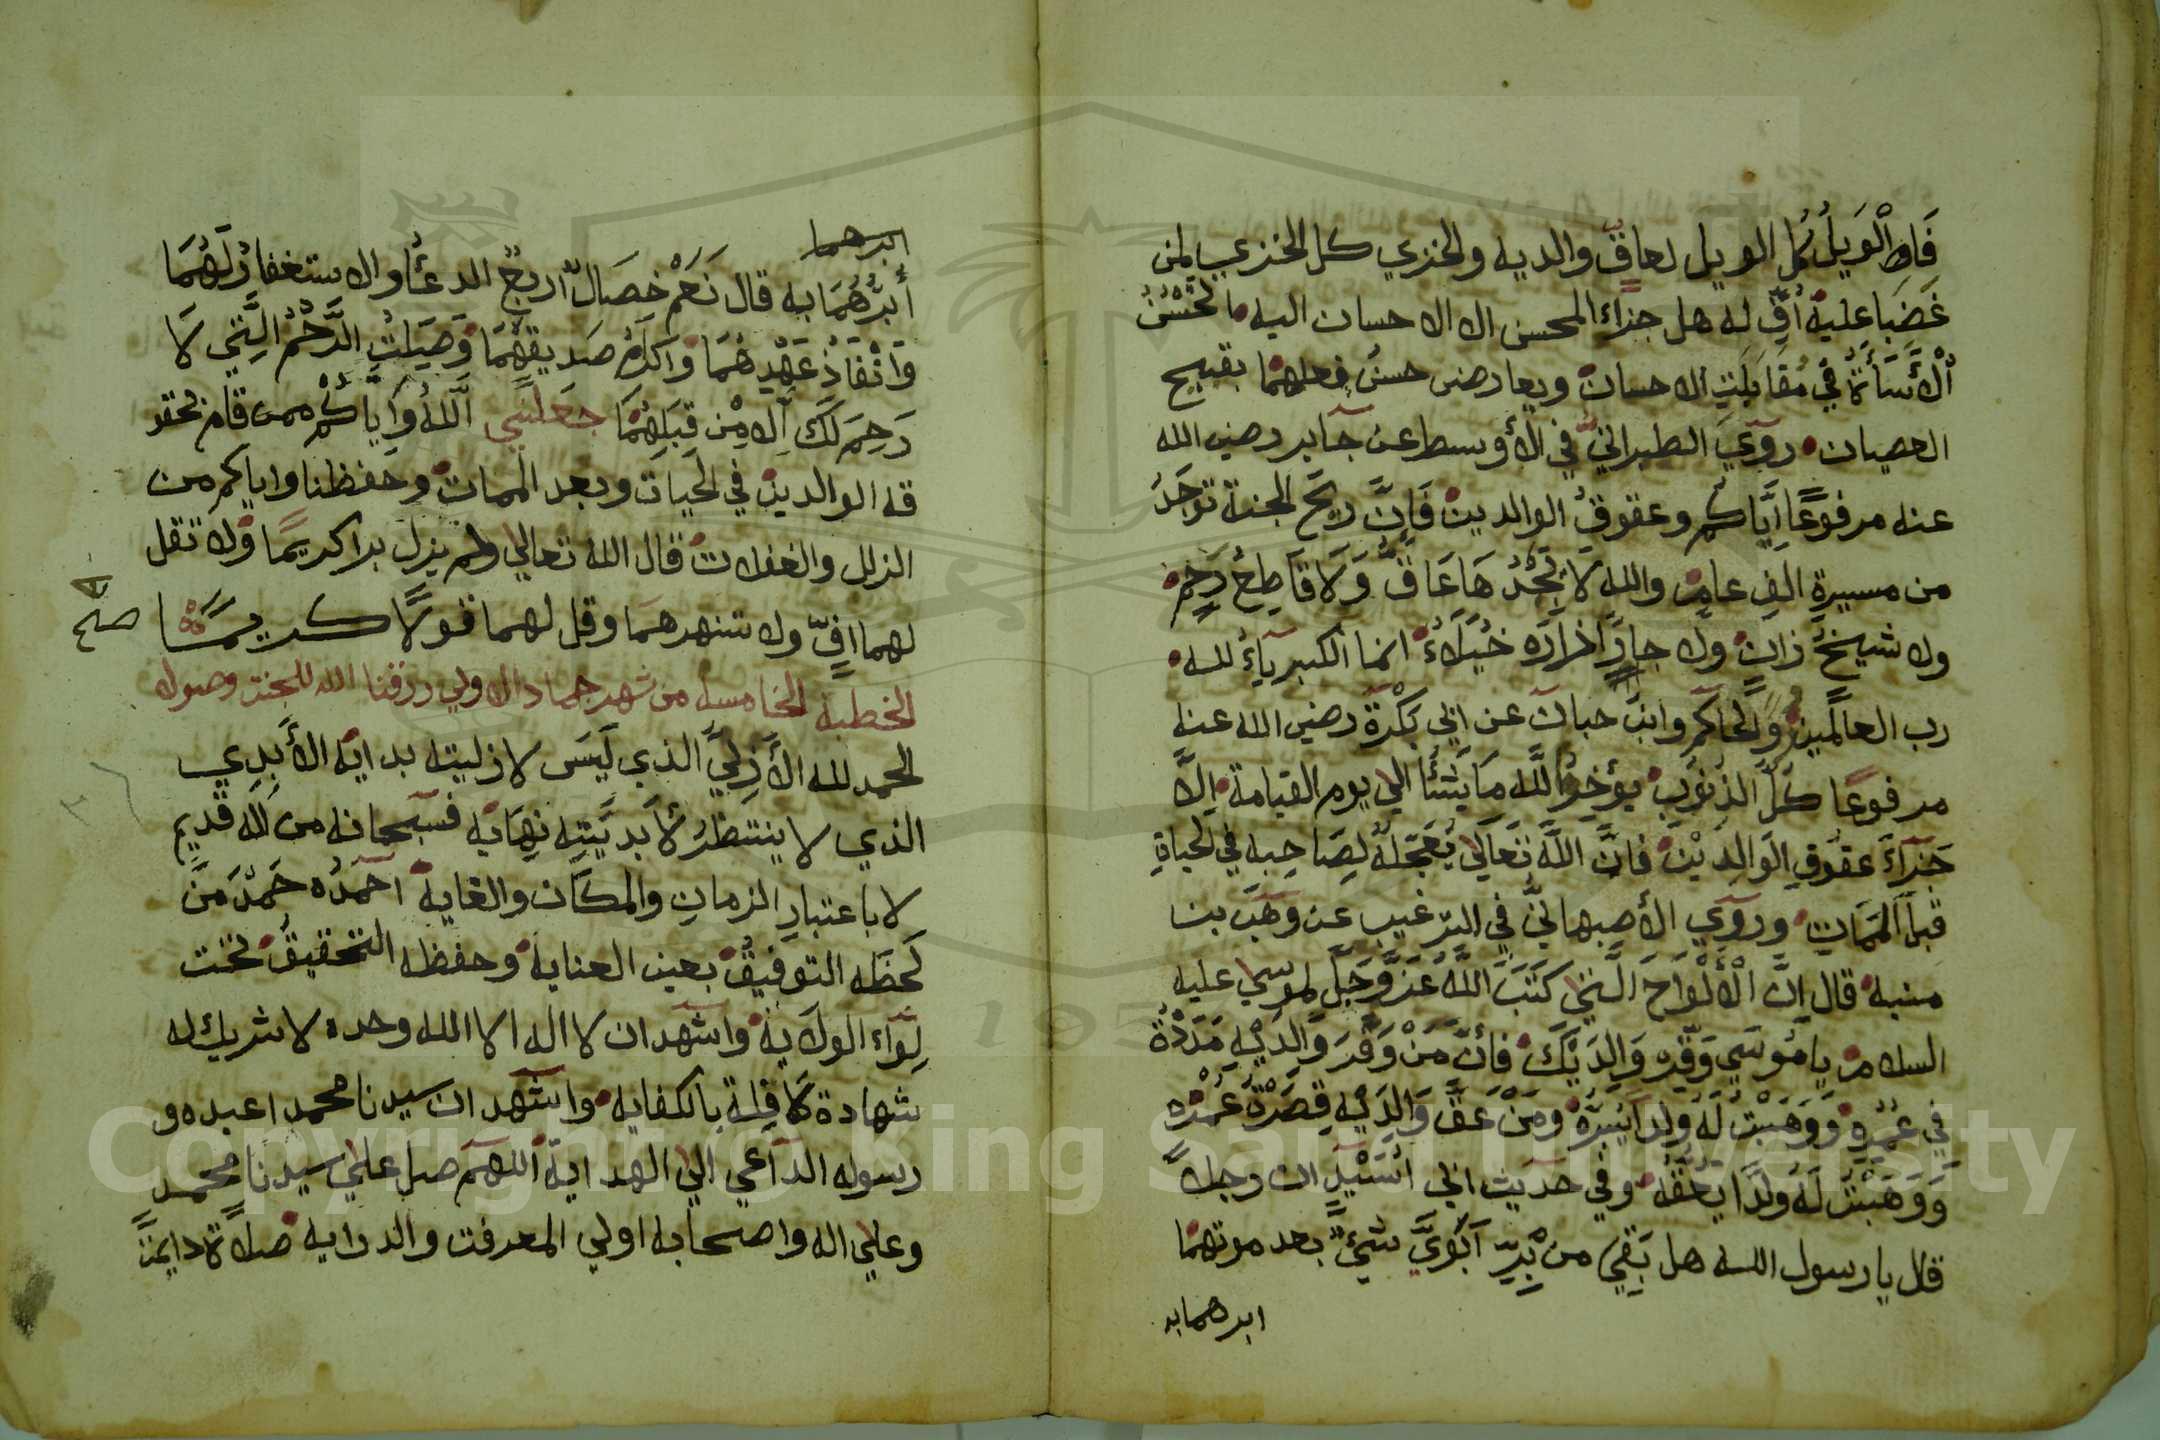 فالويل كل الويل لعاق والديه والخزي كل الخزي لمن
غضبا عليه اف له هل جزاء المحسن الا الاحسان اليه ما تحسن
الأسأة في مقابلت الاحسان ويعارض حسن فعلهما بقبيح
العصيان روي الطبراني في الأوسط عن جابر رضي الله
عنه مرفوعا اياكم وعقوق الوالدين فان ريح الجنة توجد
من مسيرة الف عام والله لا يجدها عاق ولا قاطع رحم
ولا شيخ زان ولا جار ازاره خيلاء انما الكبرياء لله
رب العالمين والحاكم وابن حبان عن ابي بكرة رضي الله عنه
مرفوعا كل الذنوب يؤخر الله ما يشأ الي يوم القيامة الا
جزآء عقوق الوالدين فان الله تعالي يعجله لصاحبه في الحياة
قبل الممات وروي الأصبهاني في الترغيب عن وهب بن
منبه قال ان الألواح التي كتب الله عز وجل لموسي عليه
السلام يا موسي وقر والديك فان من وقر والديه مددة
في عمره ووهبت له ولدا يبره ومن عق والديه قصرة عمره
ووهبت له ولدا يعقه وفي حديث ابي اسيد ان رجلا
قال يا رسول الله هل بقي من بر أبوي شيئ بعد موتهما
ابرهما به
ابرهما
أبرهما به قال نعم خصال أربع الدعأ والاستغفار لهما
وانفاذ عهدهما واكرام صديقهما وصيلت الرحم التي لا
رحم لك الا من قبلهما جعلني الله واياكم ممن قام بحقو
قه الوالدين في الحيات وبعد الممات وحفظنا واياكم من
الزلل والغفلات قال الله تعالي ولم يزل برا كريما ولا تقل
لهما اف ولا تنهرهما وقل لهما قولا كريما
صح
الخطبة الخامسة من شهر جماد الاولي رزقنا الله للجنة وصولا
الحمد لله الأزلي الذي ليس لازليته بداية الأبدي
الذي لا ينتظر لأبديته نهاية فسبحانه من اله قديم
لا باعتبار الزمان والمكان والغاية احمده حمد من
لحظه التوفيق بعين العناية وحفظه التحقيق تحت
لوآء الولاية واشهد ان لا اله الا الله وحده لا شريك له
شهادة كافلة بالكفاية واشهد ان سيدنا محمدا عبده و
رسوله الداعي الي الهداية اللهم صل علي سيدنا محمد
وعلي اله واصحابه اولي المعرفت والدراية صلاة دايمة
Copyright © King Saud University